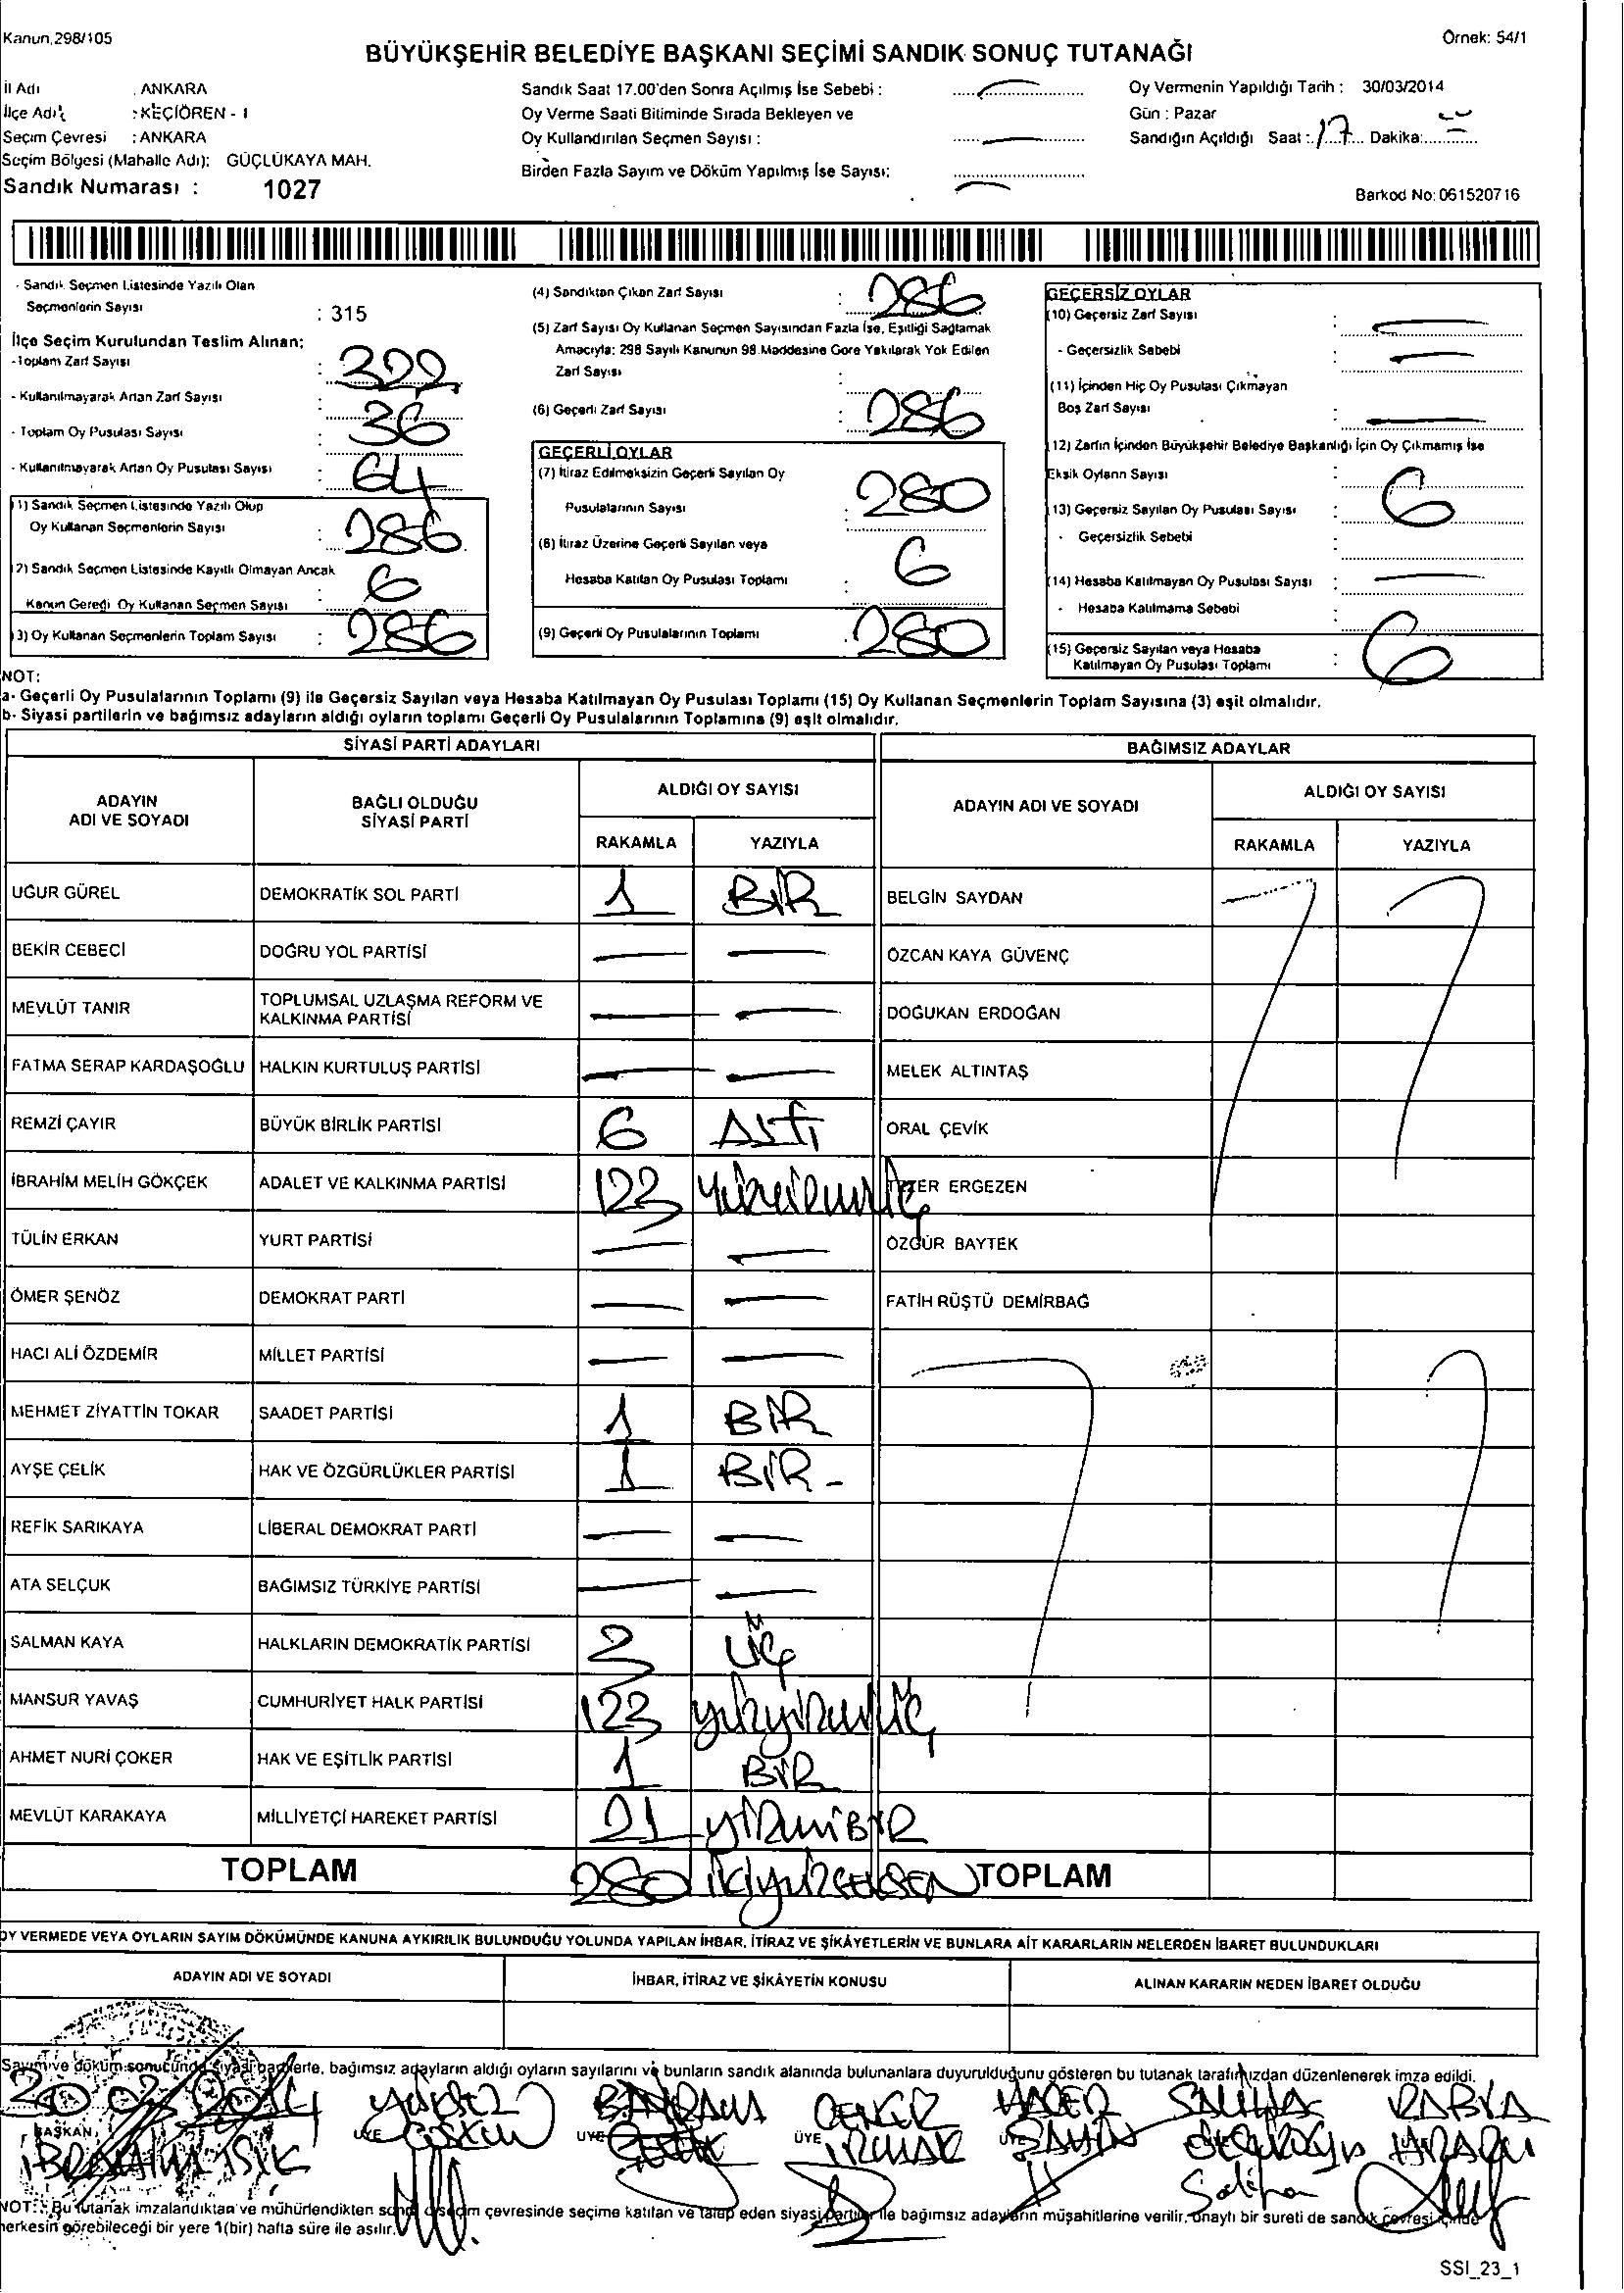 Kanun,298/105
Örnek: 54/1
BÜYÜKŞEHİR BELEDİYE BAŞKANI SEÇİMİ SANDIK SONUÇ TUTANAĞI
İl Adı : ANKARA
İlçe Adı : KEÇİÖREN - I
Seçim Çevresi : ANKARA
Seçim Bölgesi (Mahalle Adı): GÜÇLÜKAYA MAH.
Sandık Numarası : 1027
Sandık Saat 17.00'den Sonra Açılmış İse Sebebi :
Oy Verme Saati Bitiminde Sırada Bekleyen ve
Oy Kullandırılan Seçmen Sayısı :
Birden Fazla Sayım ve Döküm Yapılmış İse Sayısı:
Oy Vermenin Yapıldığı Tarih : 30/03/2014
Gün : Pazar
Sandığın Açıldığı Saat : 17 Dakika:
Barkod No: 061520716
- Sandık Seçmen Listesinde Yazılı Olan
Seçmenlerin Sayısı : 315
İlçe Seçim Kurulundan Teslim Alınan;
-Toplam Zarf Sayısı : 322
- Kullanılmayarak Artan Zarf Sayısı : 36
- Toplam Oy Pusulası Sayısı :
- Kullanılmayarak Artan Oy Pusulası Sayısı : 64
1) Sandık Seçmen Listesinde Yazılı Olup
Oy Kullanan Seçmenlerin Sayısı : 286
2) Sandık Seçmen Listesinde Kayıtlı Olmayan Ancak
Kanun Gereği Oy Kullanan Seçmen Sayısı : 6
3) Oy Kullanan Seçmenlerin Toplam Sayısı : 286
(4) Sandıktan Çıkan Zarf Sayısı : 286
(5) Zarf Sayısı Oy Kullanan Seçmen Sayısından Fazla İse, Eşitliği Sağlamak
Amacıyla: 298 Sayılı Kanunun 98.Maddesine Göre Yakılarak Yok Edilen
Zarf Sayısı :
(6) Geçerli Zarf Sayısı : 286
GEÇERLİ OYLAR
(7) İtiraz Edilmeksizin Geçerli Sayılan Oy
Pusulalarının Sayısı : 280
(8) İtiraz Üzerine Geçerli Sayılan veya
Hesaba Katılan Oy Pusulası Toplamı : 6
(9) Geçerli Oy Pusulalarının Toplamı : 280
GEÇERSİZ OYLAR
(10) Geçersiz Zarf Sayısı :
- Geçersizlik Sebebi :
(11) İçinden Hiç Oy Pusulası Çıkmayan
Boş Zarf Sayısı :
12) Zarfın İçinden Büyükşehir Belediye Başkanlığı İçin Oy Çıkmamış İse
Eksik Oyların Sayısı :
13) Geçersiz Sayılan Oy Pusulası Sayısı : 6
- Geçersizlik Sebebi :
(14) Hesaba Katılmayan Oy Pusulası Sayısı :
- Hesaba Katılmama Sebebi :
(15) Geçersiz Sayılan veya Hesaba
Katılmayan Oy Pusulası Toplamı : 6
NOT:
a- Geçerli Oy Pusulalarının Toplamı (9) ile Geçersiz Sayılan veya Hesaba Katılmayan Oy Pusulası Toplamı (15) Oy Kullanan Seçmenlerin Toplam Sayısına (3) eşit olmalıdır.
b- Siyasi partilerin ve bağımsız adayların aldığı oyların toplamı Geçerli Oy Pusulalarının Toplamına (9) eşit olmalıdır.
SİYASİ PARTİ ADAYLARI
BAĞIMSIZ ADAYLAR
ADAYIN ADI VE SOYADI
BAĞLI OLDUĞU SİYASİ PARTİ
ALDIĞI OY SAYISI
RAKAMLA YAZIYLA
ADAYIN ADI VE SOYADI
ALDIĞI OY SAYISI
RAKAMLA YAZIYLA
UĞUR GÜREL DEMOKRATİK SOL PARTİ 1 BİR BELGİN SAYDAN
BEKİR CEBECİ DOĞRU YOL PARTİSİ ÖZCAN KAYA GÜVENÇ
MEVLÜT TANIR TOPLUMSAL UZLAŞMA REFORM VE KALKINMA PARTİSİ DOĞUKAN ERDOĞAN
FATMA SERAP KARDAŞOĞLU HALKIN KURTULUŞ PARTİSİ MELEK ALTINTAŞ
REMZİ ÇAYIR BÜYÜK BİRLİK PARTİSİ 6 ALTI ORAL ÇEVİK
İBRAHİM MELİH GÖKÇEK ADALET VE KALKINMA PARTİSİ 123 ERGEZEN
TÜLİN ERKAN YURT PARTİSİ ÖZGÜR BAYTEK
ÖMER ŞENÖZ DEMOKRAT PARTİ FATİH RÜŞTÜ DEMİRBAĞ
HACI ALİ ÖZDEMİR MİLLET PARTİSİ
MEHMET ZİYATTİN TOKAR SAADET PARTİSİ 1 BİR
AYŞE ÇELİK HAK VE ÖZGÜRLÜKLER PARTİSİ 1 BİR -
REFİK SARIKAYA LİBERAL DEMOKRAT PARTİ
ATA SELÇUK BAĞIMSIZ TÜRKİYE PARTİSİ
SALMAN KAYA HALKLARIN DEMOKRATİK PARTİSİ 3 ÜÇ
MANSUR YAVAŞ CUMHURİYET HALK PARTİSİ 123
AHMET NURİ ÇOKER HAK VE EŞİTLİK PARTİSİ 1 BİR
MEVLÜT KARAKAYA MİLLİYETÇİ HAREKET PARTİSİ 21 YİRMİBİR
TOPLAM 280 İKİYÜZSEKSEN TOPLAM
OY VERMEDE VEYA OYLARIN SAYIM DÖKÜMÜNDE KANUNA AYKIRILIK BULUNDUĞU YOLUNDA YAPILAN İHBAR, İTİRAZ VE ŞİKÂYETLERİN VE BUNLARA AİT KARARLARIN NELERDEN İBARET BULUNDUKLARI
ADAYIN ADI VE SOYADI İHBAR, İTİRAZ VE ŞİKÂYETİN KONUSU ALINAN KARARIN NEDEN İBARET OLDUĞU
Sayım ve döküm sonucunda siyasi partilerle, bağımsız adayların aldığı oyların sayılarını ve bunların sandık alanında bulunanlara duyurulduğunu gösteren bu tutanak tarafımızdan düzenlenerek imza edildi.
30 03 2014 YÜKSEL BAYRAM CENGİZ HACER SALİHA RABİA
BAŞKAN ÜYE ÜYE ÜYE ÜYE
İBRAHİM IŞIK COŞKUN IRMAK ŞAHİN
Saliha
NOT: Bu tutanak imzalandıktan ve mühürlendikten sonra seçim çevresinde seçime katılan ve talep eden siyasi partiler ile bağımsız adayların müşahitlerine verilir, onaylı bir sureti de sandık çevresi içinde
herkesin görebileceği bir yere 1(bir) hafta süre ile asılır.
SSI_23_1